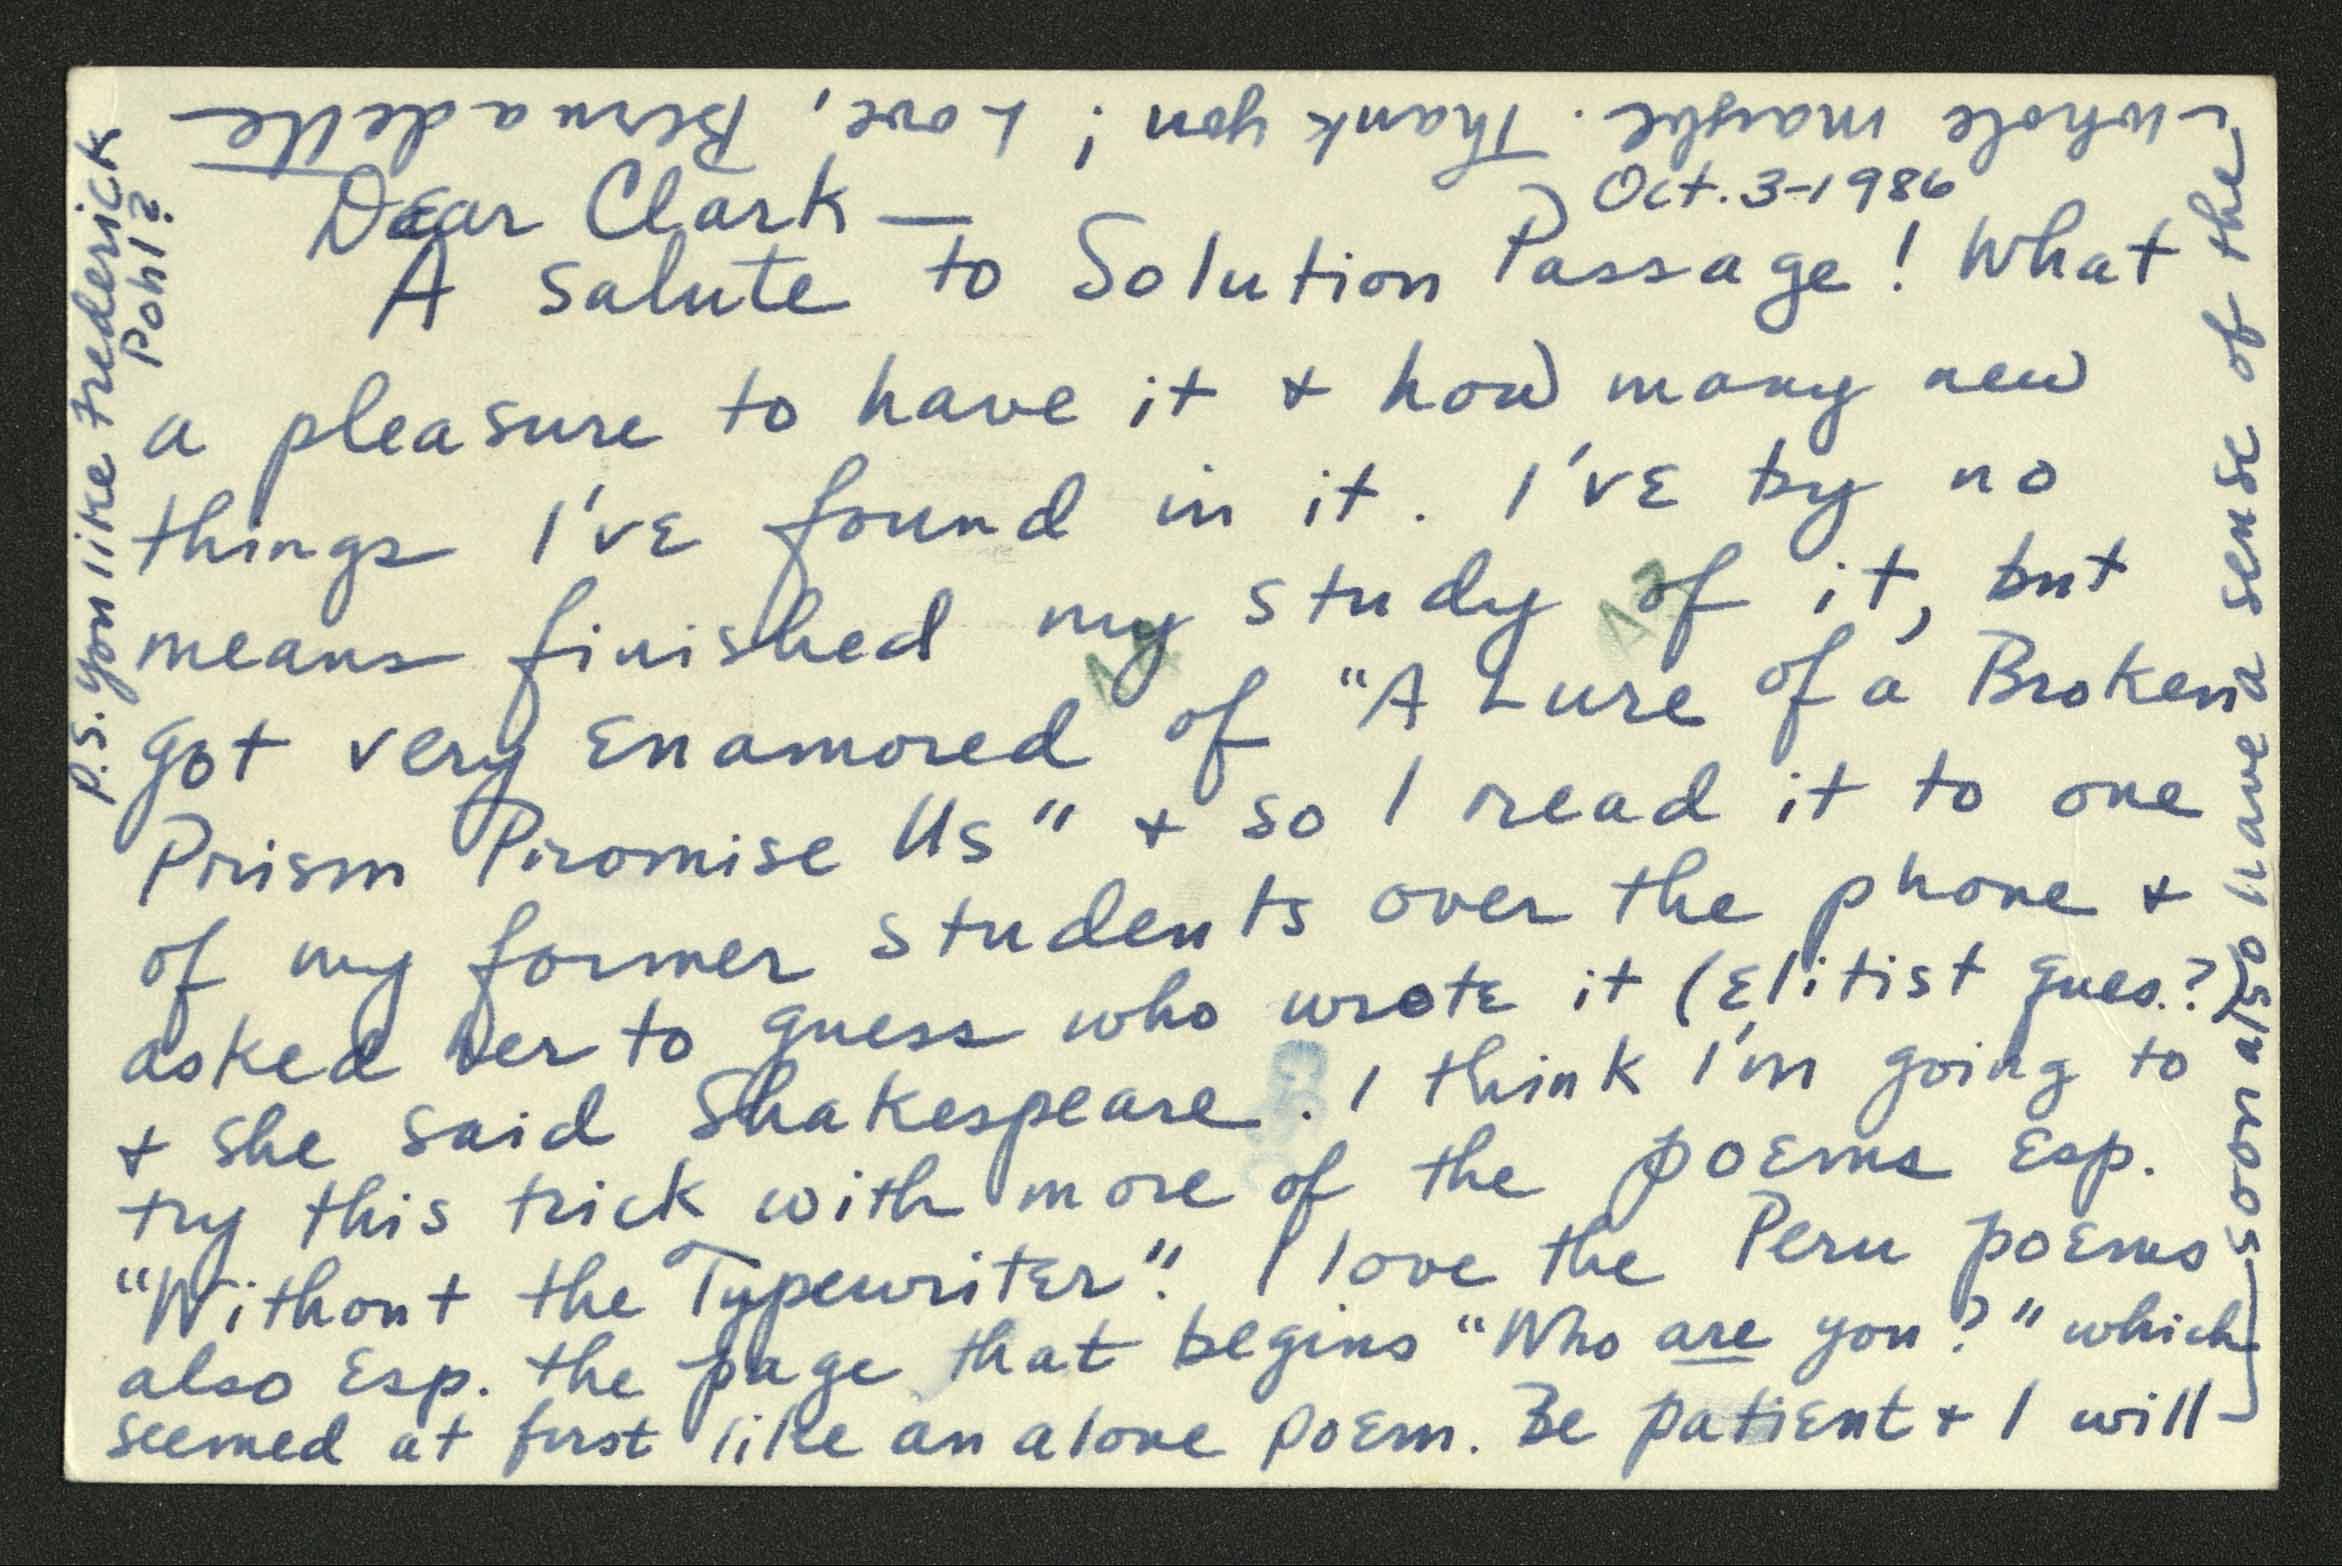 Oct. 3-1986
Dear Clark —
A salute to Solution Passage! What
a pleasure to have it + how many new
things I've found in it. I've by no
means finished my study of it, but
got very enamored of "A Lure of a Broken
Prism Promise Us" + so I read it to one
of my former students over the phone +
asked her to guess who wrote it (Elitist gues.?)
+ she said Shakespeare. I think I'm going to
try this trick with more of the poems esp.
"Without the Typewriter". I love the Peru poems
also esp. the page that begins "Who are you?" which
seemed at first like an alone poem. Be patient + I will
soon also have a sense of the
whole maybe. Thank you; Love, Bernadette
P.S. you like Frederick
Pohl?